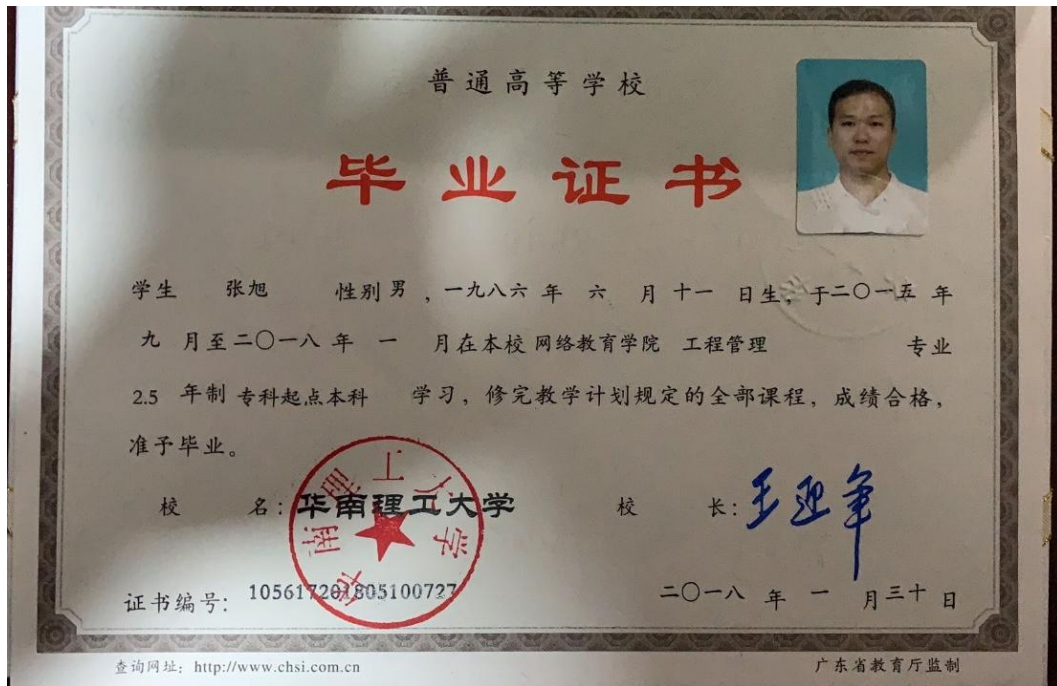 普通高等学校
毕业证书
学生 张旭 性别 男 ，一九八六 年 六 月 十一 日生，于二〇一五 年
九 月至二〇一八 年 一 月在本校 网络教育学院 工程管理 专业
2.5 年制 专科起点本科 学习，修完教学计划规定的全部课程，成绩合格，
准予毕业。
校 名：华南理工大学 校 长：王迎军
华南理工大学
证书编号：105617201805100727 二〇一八 年 一 月三十 日
查询网址：http://www.chsi.com.cn 广东省教育厅监制